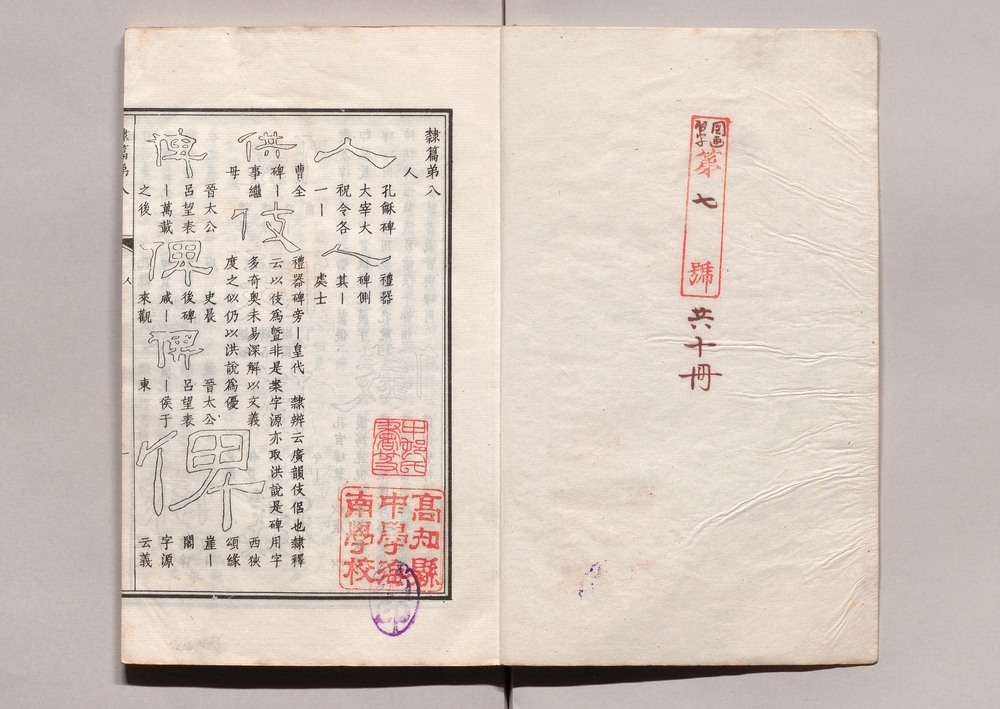 圖画
習字
第七號
共十冊
隸篇弟八
人
人
孔龢碑
大宰大
祝令各
一丨
人
禮器
碑側
其丨
處士
供
曹全
碑丨
事繼
母
伎
禮器碑旁丨皇代 隸辨云廣韻伎侶也隸釋
云以伎爲曁非是案字源亦取洪說是碑用字
多奇奧未易深解以文義
度之似仍以洪說爲優
西狹
頌緣
俾
晉太公
呂望表
丨萬載
之後
俾
史晨
後碑
咸丨
來觀
俾
晉太公
呂望表
丨侯于
東
俾
崖丨
閣
字源
云義
高知縣
中學海
南學校
隸篇弟八
人